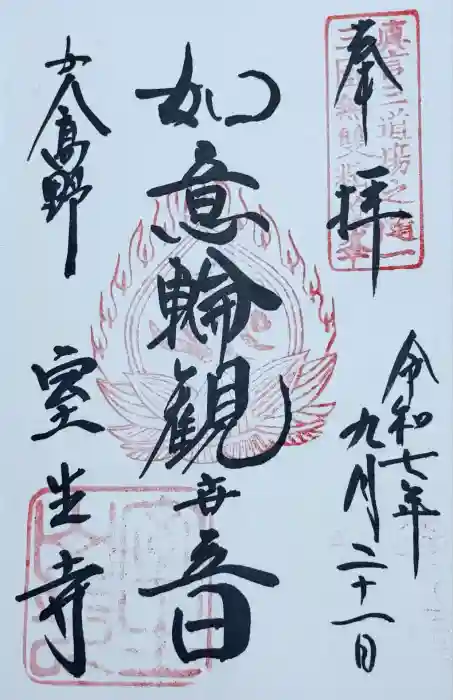 奉拝
令和七年
九月二十一日
如意輪観世音
女人高野
室生寺